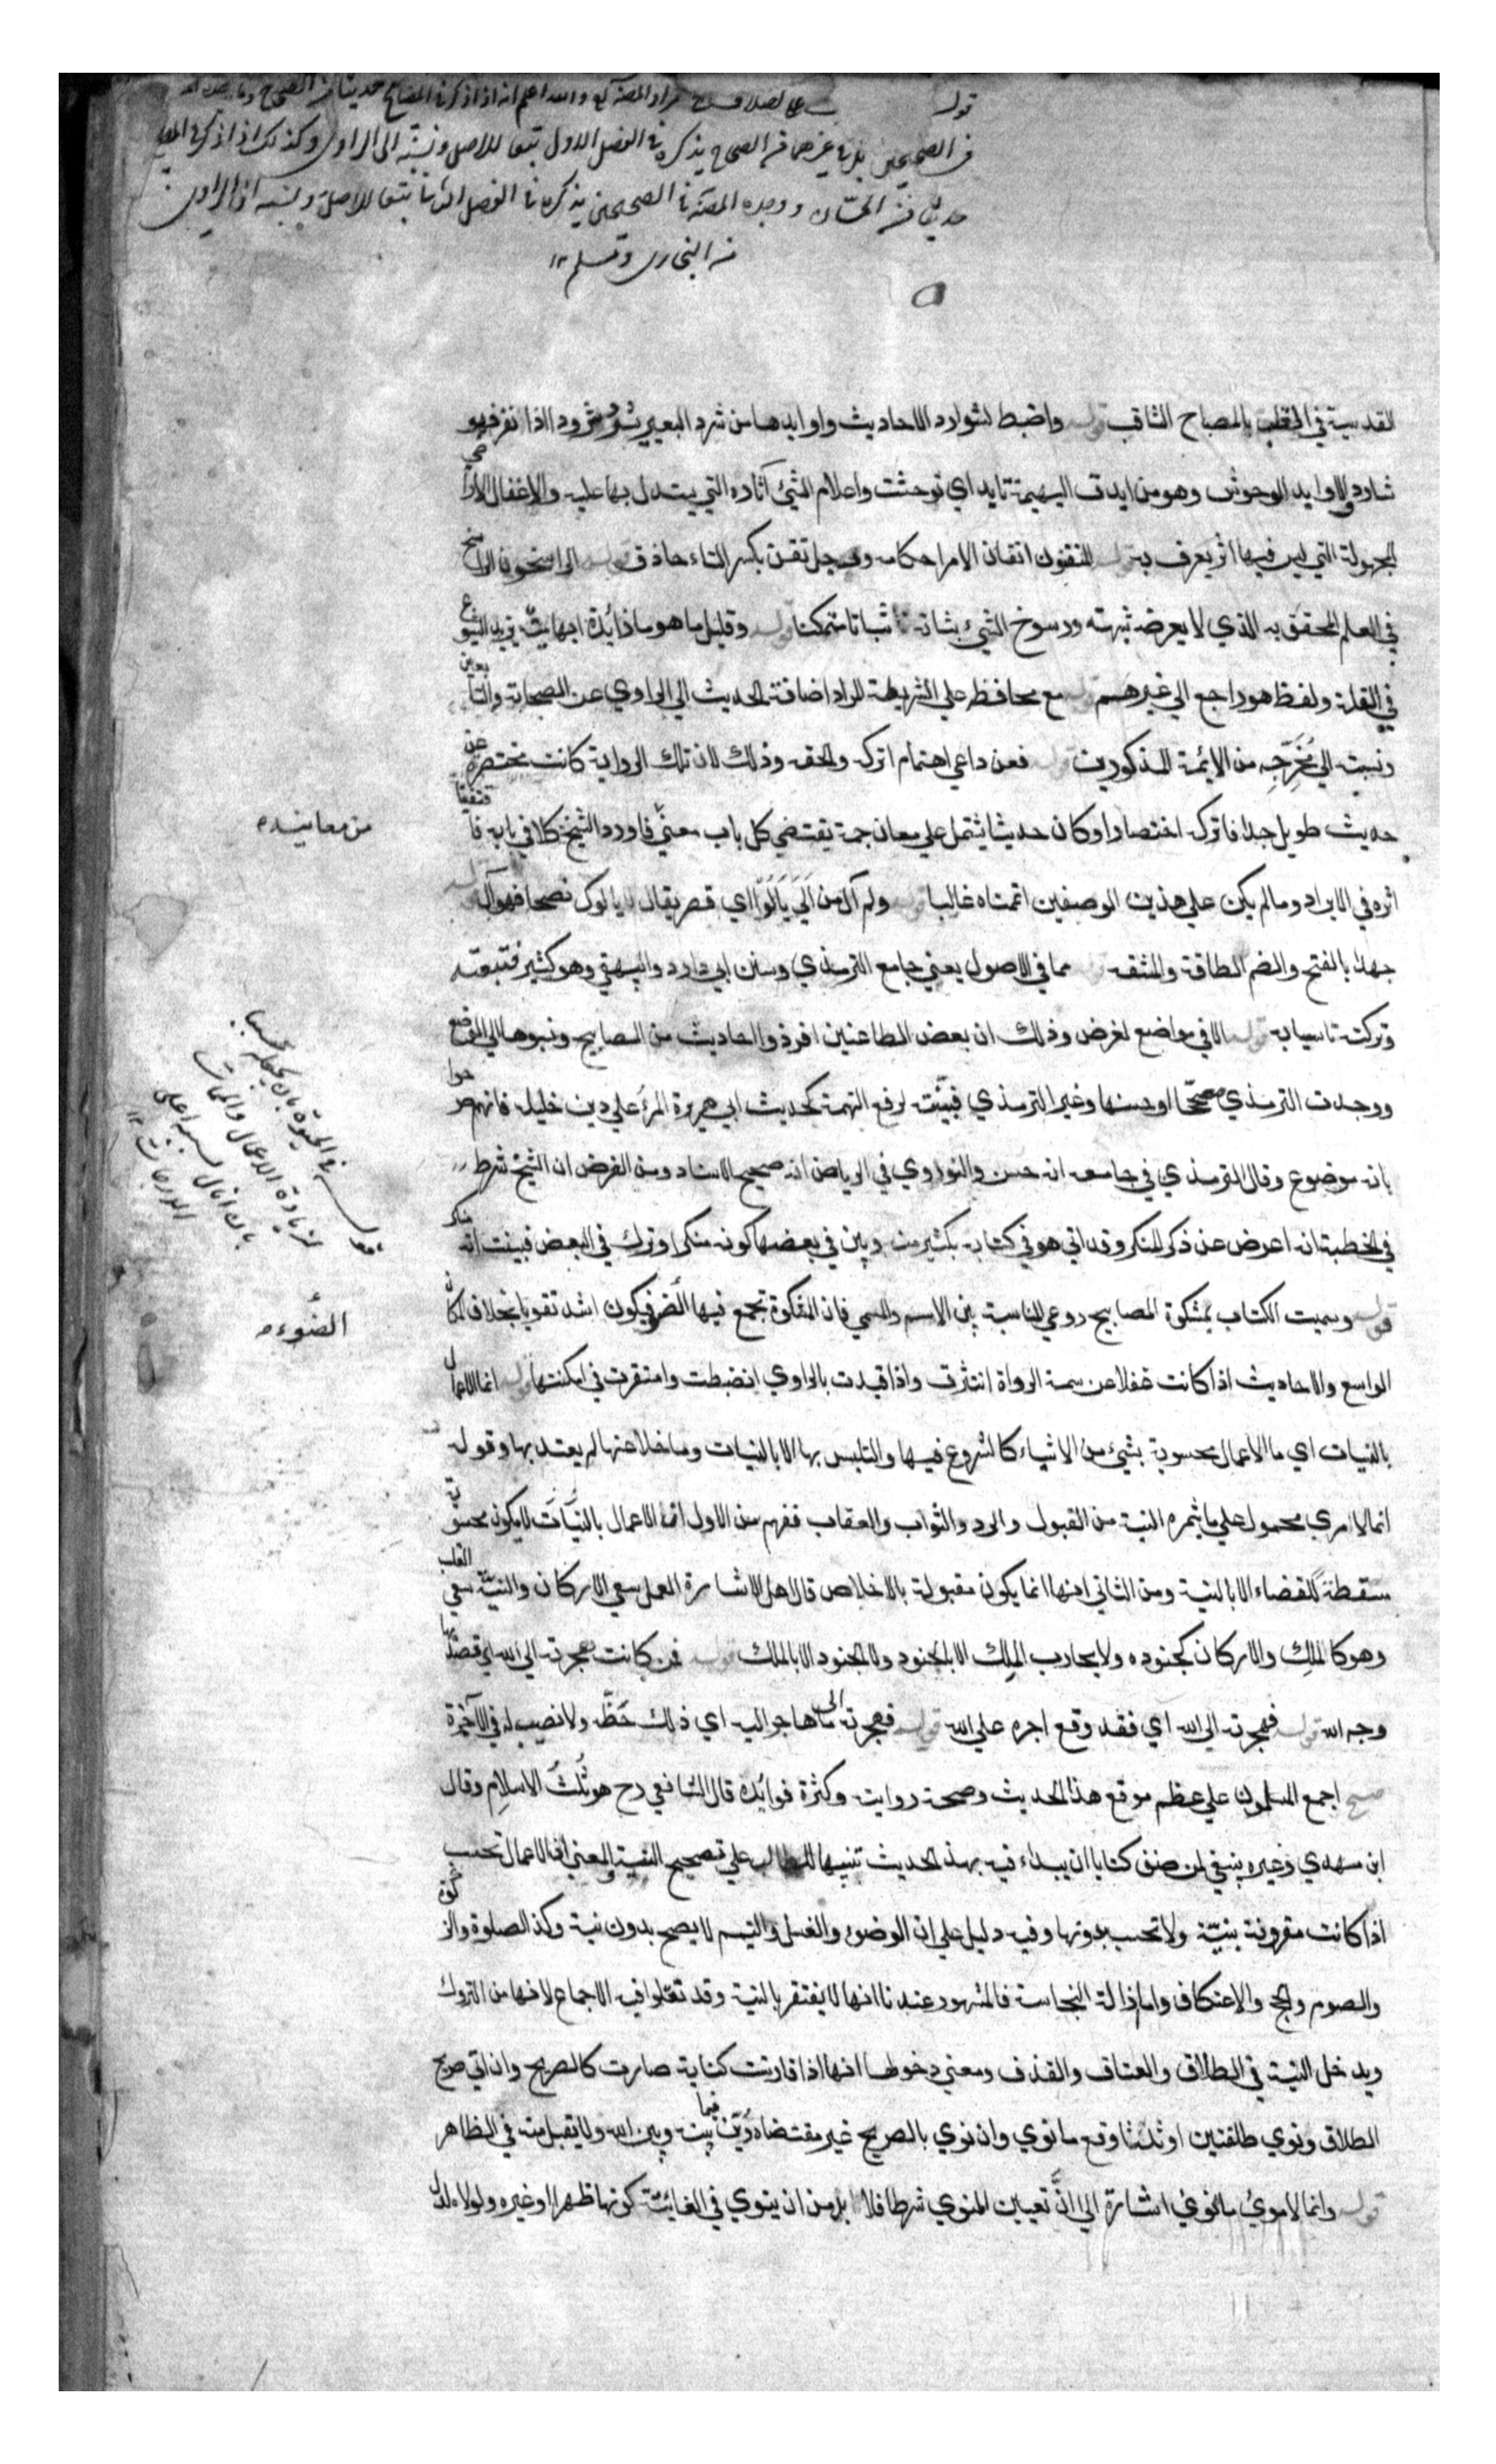 قوله مراد المصنف والله اعلم انه اذا ذكر في المصابيح حديثا من الصحاح
في الصحيحين بل في غيرهما من الصحاح يذكره في الفصل الاول تبعا للاصل ونسبته الى الراوي وكذلك اذا ذكر في
حديثا من الحسان ووجده المصنف في الصحيحين يذكره في الفصل الثاني تبعا للاصل
من البخاري ومسلم ١٢
القدسية في القلب بالمصباح الثاقب قوله واضبط لشوارد الاحاديث واوابدها من شرد البعير شرودا اذا نفر فهو
شارد والاوابد الوحوش وهو من ابدت البهيمة تابد اي توحشت واعلام الشئ آثاره التي يستدل بها عليه والاغفال الاراضي
المجهولة التي ليس فيها اثر يعرف به قوله المتقنون اتقان الامر احكامه ورجل تقن بكسر التاء حاذق قوله الراسخون الراسخ
في العلم المحقق به الذي لا يعرضه شبهته ورسوخ الشيء ثباته ثباتا متمكنا قوله وقليل ما هو ما زائدة ابهامية يزيد الشيوع
في القلة ولفظ هو راجع الي غيرهم قوله مع محافظه علي الشريطة المراد اضافة الحديث الي الراوي عن الصحابة والتابعين
ونسبته الي مخرجه من الايمة المذكورين قوله فعن داعي اهتمام اتركه والحقه وذلك لان تلك الرواية كانت مختصرة عن
حديث طويل جدا فاتركه اختصارا او كان حديثا يشتمل علي معان جمة يقتضي كل باب معني فاورد الشيخ كلا في بابه فاقتفينا
من معانيه ه
اثره في الايراد وما لم يكن علي هذين الوصفين اتممناه غالبا قوله ولم آل من الي يالوا اي قصر يقال لا يالوك نصحا فهو آل قوله
جهدا بالفتح والضم الطاقة والمشقة قوله مما في الاصول يعني جامع الترمذي وسنن ابي داود والبيهقي وهو كثير فتبعته
وتركت تاسيا به قوله الا في مواضع لغرض وذلك ان بعض الطاعنين افرزوا احاديث من المصابيح ونسبوها الي الوضع
ووجدت الترمذي صححها او حسنها وغير الترمذي فبينت لرفع التهمة كحديث ابي هريرة المرء علي دين خليله فانهم صرحوا
بانه موضوع وقال الترمذي في جامعه انه حسن والنووي في الرياض انه صحيح الاسناد ومن الغرض ان الشيخ شرط
في الخطبة انه اعرض عن ذكر المنكر وقد اتي هو في كتابه بكثير منه وبين في بعضها كونه منكرا وترك في البعض فبينت انه منكر
قوله في الحيوة بان
بزيادة الاعمال والممات
بان
الدرجات ١٢
قوله وسميت الكتاب بمشكوة المصابيح روعي المناسبة بين الاسم والمسمي فان المشكوة تجمع فيها الضوء فيكون اشد تقويا بخلاف المكان
الضوء ه
الواسع والاحاديث اذا كانت غفلا عن سمة الرواة انتثرت واذا قيدت بالراوي انضبطت واستقرت في امكنتها قوله انما الاعمال
بالنيات اي ما الاعمال محسوبة بشيء من الاشياء كالشروع فيها والتلبس بها الا بالنيات وما خلا عنها لم يعتد بها وقوله
انما لامري محمول علي ما يثمره النية من القبول والرد والثواب والعقاب ففهم من الاول انما الاعمال بالنيات لا يكون محسوبة
مسقطة للقضاء الا بالنية ومن الثاني انها انما يكون مقبولة بالاخلاص قال اهل الاشارة العمل سعي الاركان والنية سعي القلب
وهو كالملك والاركان كجنوده ولا يحارب الملك الا بالجنود ولا الجنود الا بالملك قوله فمن كانت هجرته الي الله اي قصد بها
وجه الله قوله فهجرته الي الله اي فقد وقع اجره علي الله قوله فهجرته الى ما هاجر اليه اي ذلك حظه ولا نصيب له في الآخرة
صح اجمع المسلمون علي عظم موقع هذا الحديث وصحة روايته وكثرة فوايده قال الشافعي رح هو ثلث الاسلام وقال
ابن مهدي وغيره ينبغي لمن صنف كتابا ان يبداء فيه بهذا الحديث تنبيها للطالب علي تصحيح النية والمعني انما الاعمال تحسب
اذا كانت مقرونة بنية ولا تحسب بدونها وفيه دليل علي ان الوضوء والغسل والتيمم لا يصح بدون نية وكذا الصلوة والزكوة
والصوم والحج والاعتكاف واما ازالة النجاسة فالمشهور عندنا انها لا يفتقر بالنية وقد نقلوا فيه الاجماع لانها من التروك
ويدخل النية في الطلاق والعتاق والقذف ومعني دخولها انها اذا قارنت كناية صارت كالصريح وان اتي صريح
الطلاق ونوي طلقتين او ثلثا وقع ما نوي وان نوي بالصريح غير مقتضاه دين فيما بينه وبين الله ولا يقبل منه في الظاهر
قوله وانما لامرئ ما نوي اشارة الي ان تعيين المنوي شرط فلا بد من ان ينوي في الفائتة كونها ظهرا او غيره ولولا